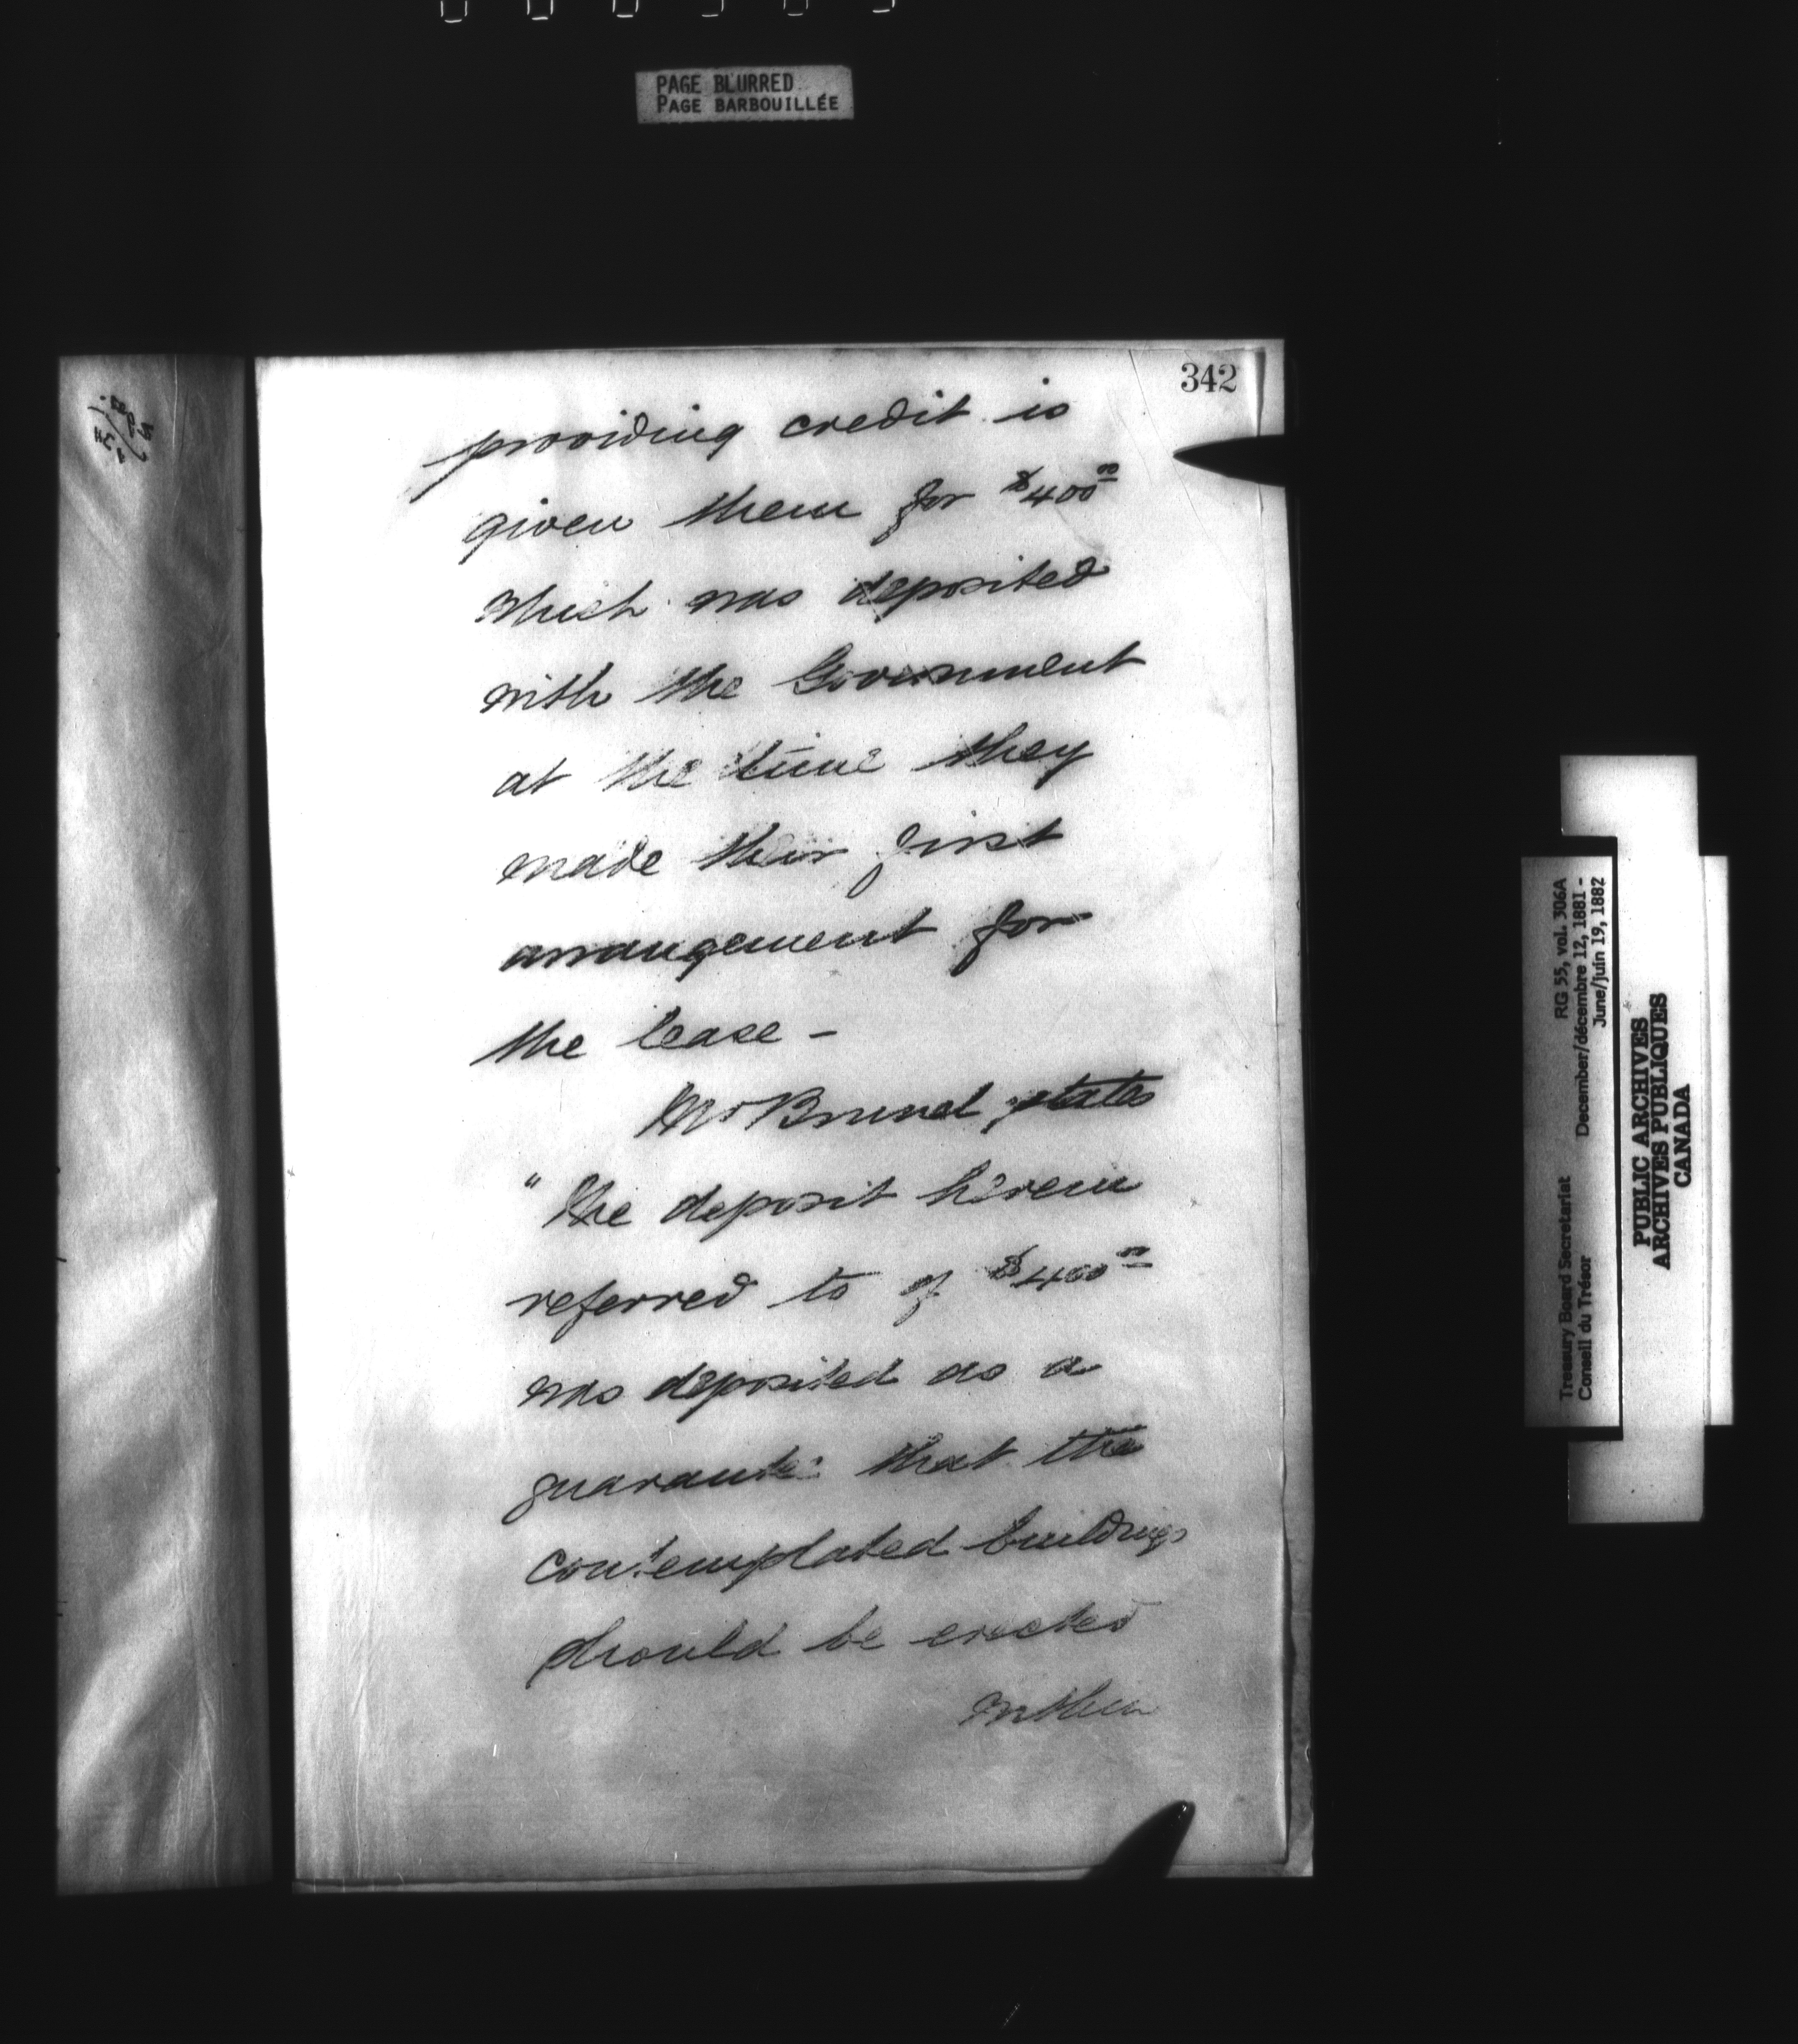 PAGE BLURRED
PAGE BARBOUILLÉE
342
providing credit is
given them for $400.00
which was deposited
with the Government
at the time they
made their first
arrangement for
the lease –
Mr Brunel, states
"The deposit herein
referred to of $400.00
was deposited as a
guarantee that the
contemplated buildings
should be erected
within
Treasury Board Secretariat RG 55, vol. 306A
Conseil du Trésor December/décembre 12, 1881 -
June/juin 19, 1882
PUBLIC ARCHIVES
ARCHIVES PUBLIQUES
CANADA